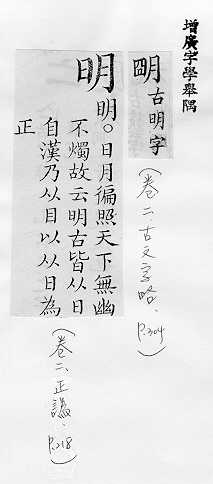 增廣字學舉隅
朙古明字
(卷二、古文字略、P.304)
明
明。日月徧照天下無幽
不燭故云明古皆从日
自漢乃从目以从日為
正
(卷二、正譌、P.218)